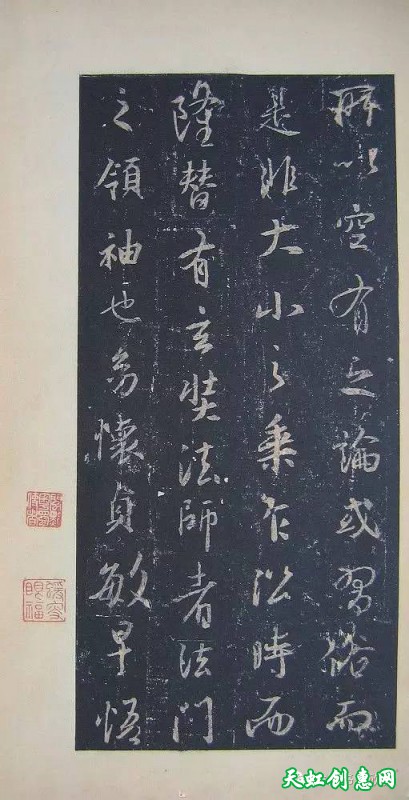 所以空有之論或習俗而
是非大小之乘乍沿時而
隆替有玄奘法師者法門
之領袖也幼懷貞敏早悟
眼福
天虹创惠网